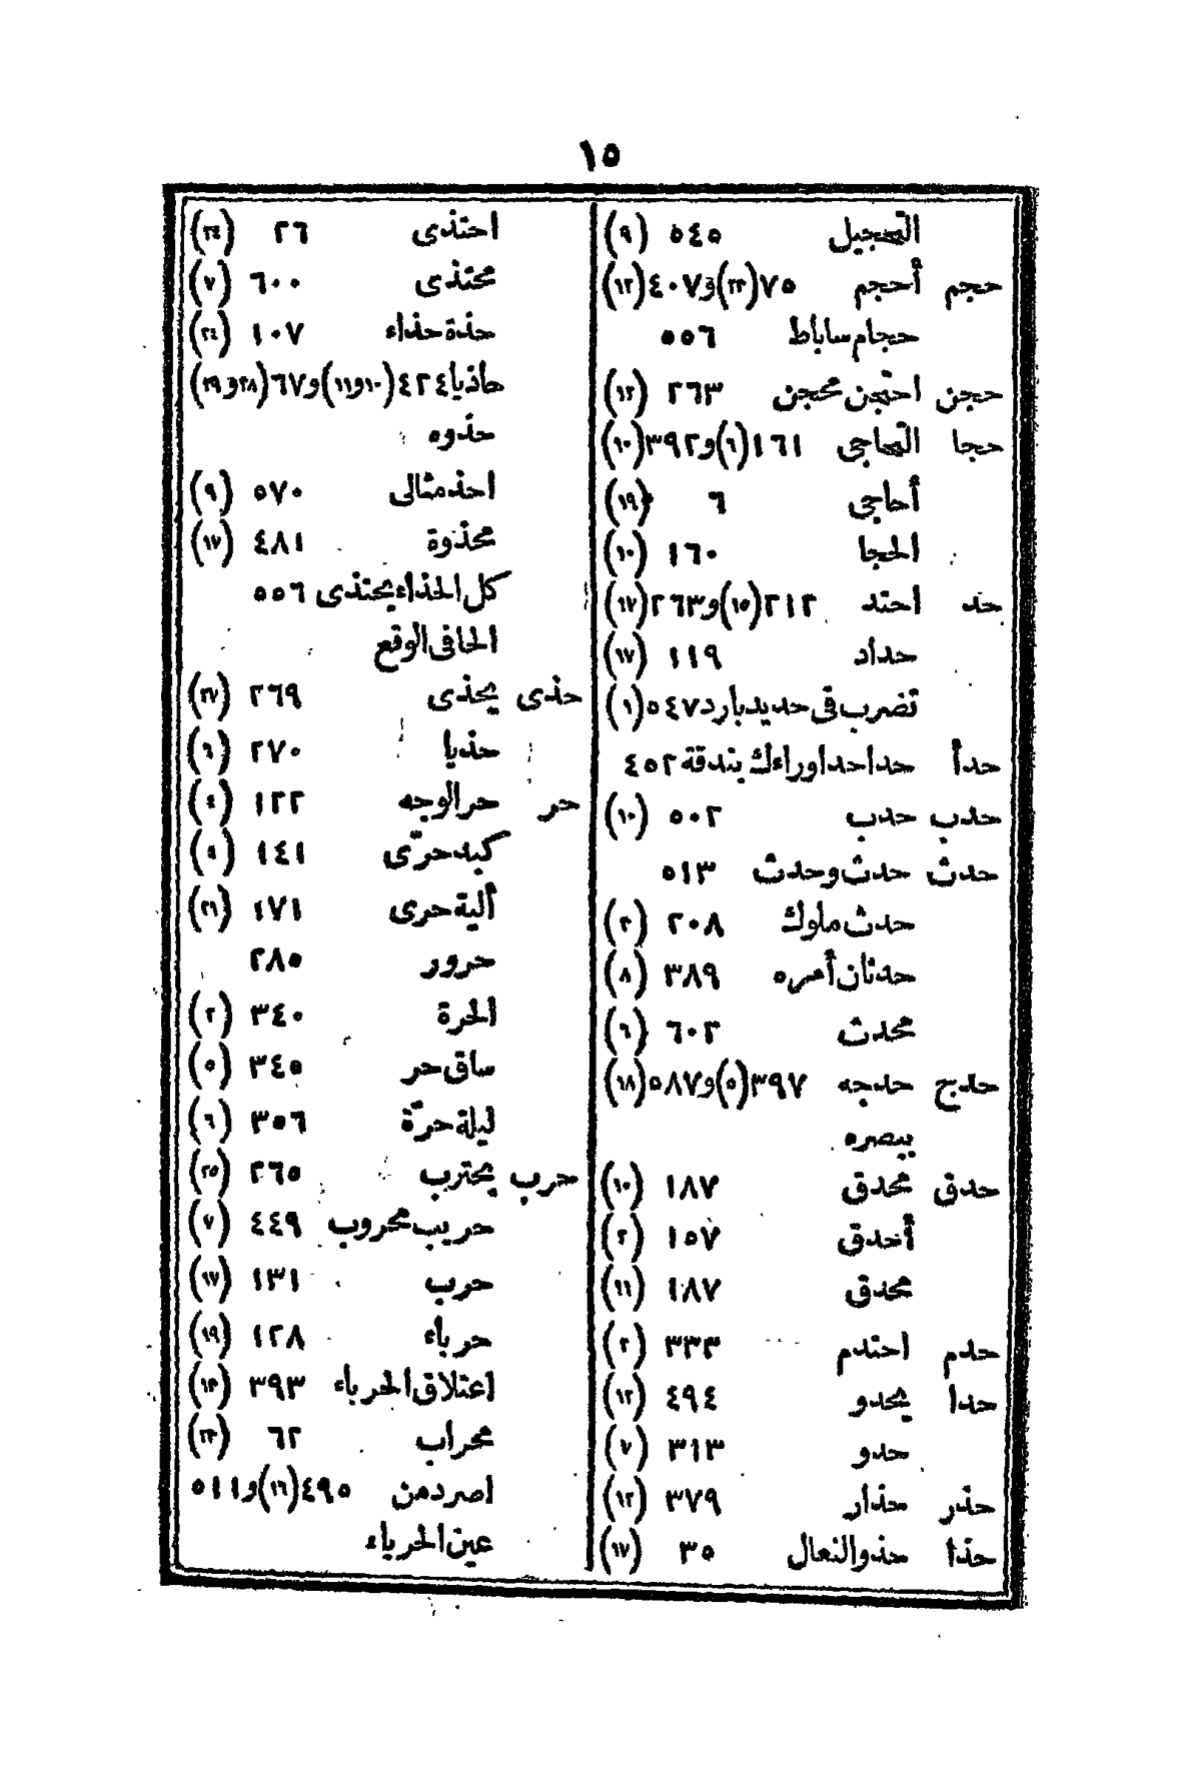 ١٥
التحجيل ٥٤٥ (٩)
حجم أحجم ٧٥(٢٣)و٤٠٧(١٢)
حجام ساباط ٥٥٦
حجن احتجن محجن ٢٦٣ (١٢)
حجا التحاجى ١٦١(٦)و٣٩٢(١٠)
أحاجى ٦ (١٩)
الحجا ١٦٠ (١٠)
حد احتد ٢١٢(١٥)و٢٦٣(١٧)
حداد ١١٩ (١٧)
تضرب فى حديد بارد ٥٤٧(١)
حدأ حداحدا وراءك بندقة ٤٥٢
حدب حدب ٥٠٢ (١٠)
حدث حدث وحدث ٥١٣
حدث ملوك ٢٠٨ (٣)
حدثان أمره ٣٨٩ (٨)
محدث ٦٠٢ (٦)
حدج حدجه ٣٩٧(٥)و٥٨٧(١٨)
ببصره
حدق محدق ١٨٧ (١٠)
أحدق ١٥٧ (٢)
محدق ١٨٧ (١١)
حدم احتدم ٣٣٣ (٢)
حدا يحدو ٤٩٤ (١٢)
حدو ٣١٣ (٧)
حذر حذار ٣٧٩ (١٢)
حذا حذو النعال ٣٥ (١٧)
احتذى ٢٦ (٢٤)
محتذى ٦٠٠ (٧)
حذة حذاء ١٠٧ (٢٤)
حاذيا ٤٢٤(١٠و١١)و٦٧(٢٨و٢٩)
حذوه
احذ مثالى ٥٧٠ (٩)
محذوة ٤٨١ (١٧)
كل الحذاء يحتذى ٥٥٦
الحافى الوقع
حذى يحذى ٢٦٩ (٢٧)
حذيا ٢٧٠ (٦)
حر حر الوجه ١٢٢ (٤)
كبد حرّى ١٤١ (٥)
ألية حرى ١٧١ (٢٦)
حرور ٢٨٥
الحرة ٣٤٠ (٢)
ساق حر ٣٤٥ (٥)
ليلة حرّة ٣٥٦ (٦)
حرب يحترب ٢٦٥ (٢٥)
حريب محروب ٤٤٩ (٧)
حرب ١٣١ (١٧)
حرباء ١٢٨ (١٩)
اعتلاق الحرباء ٣٩٣ (١٣)
محراب ٦٢ (٢٣)
اصرد من ٤٩٥(١٦)و٥١١
عين الحرباء